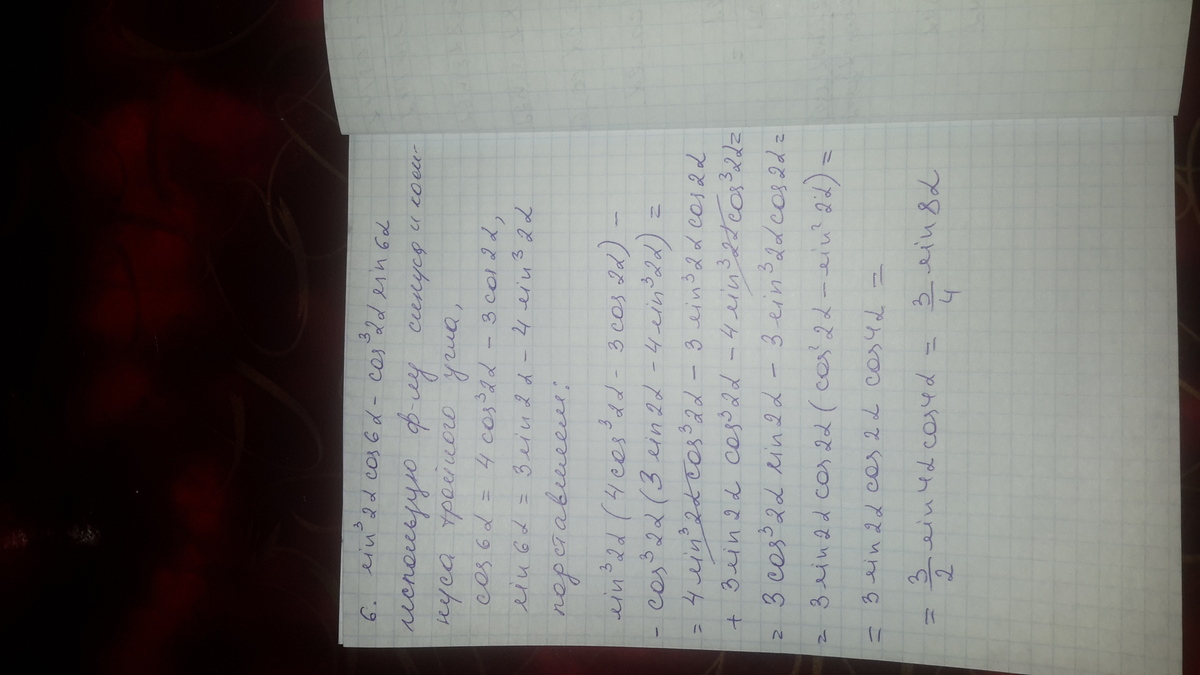 6. sin³2α cos6α - cos³2α sin6α
использую ф-лу синуса и коси-
нуса тройного угла,
cos6α = 4cos³2α - 3cos2α,
sin6α = 3sin2α - 4sin³2α
подставляем:
sin³2α(4cos³2α - 3cos2α) -
- cos³2α(3sin2α - 4sin³2α) =
= 4sin³2α cos³2α - 3sin³2α cos2α
+ 3sin2α cos³2α - 4sin³2α cos³2α =
= 3cos³2α sin2α - 3sin³2α cos2α =
= 3sin2α cos2α(cos²2α - sin²2α) =
= 3sin2α cos2α cos4α =
= 3/2 sin4α cos4α = 3/4 sin8α